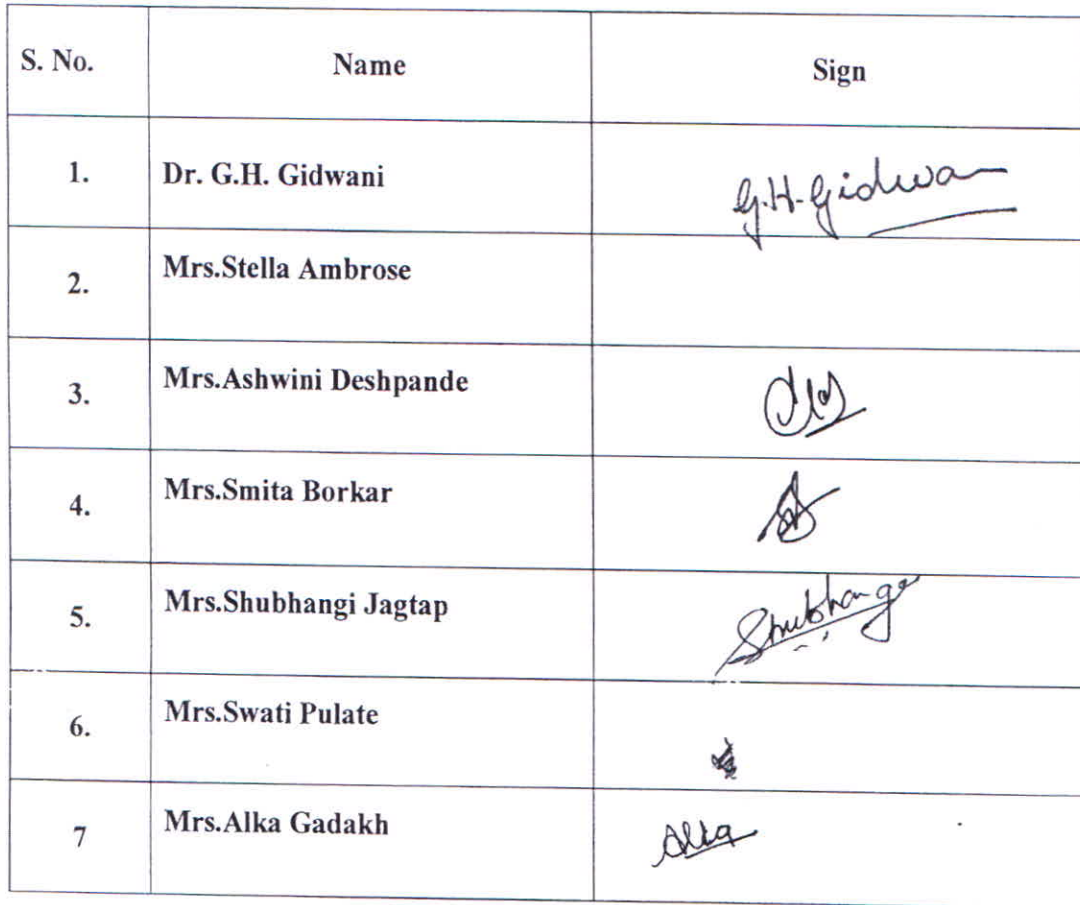 S. No. Name Sign
1. Dr. G.H. Gidwani G.H. Gidwa
2. Mrs.Stella Ambrose
3. Mrs.Ashwini Deshpande
4. Mrs.Smita Borkar
5. Mrs.Shubhangi Jagtap Shubhange
6. Mrs.Swati Pulate
7 Mrs.Alka Gadakh Alka